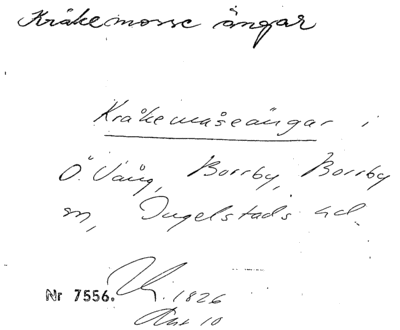 Kråkemosse ängar
Kråkemåseängar i
Ö. Vång, Borrby, Borrby
sn, Ingelstads hd.
Nr 7556. 1826
Akt 10